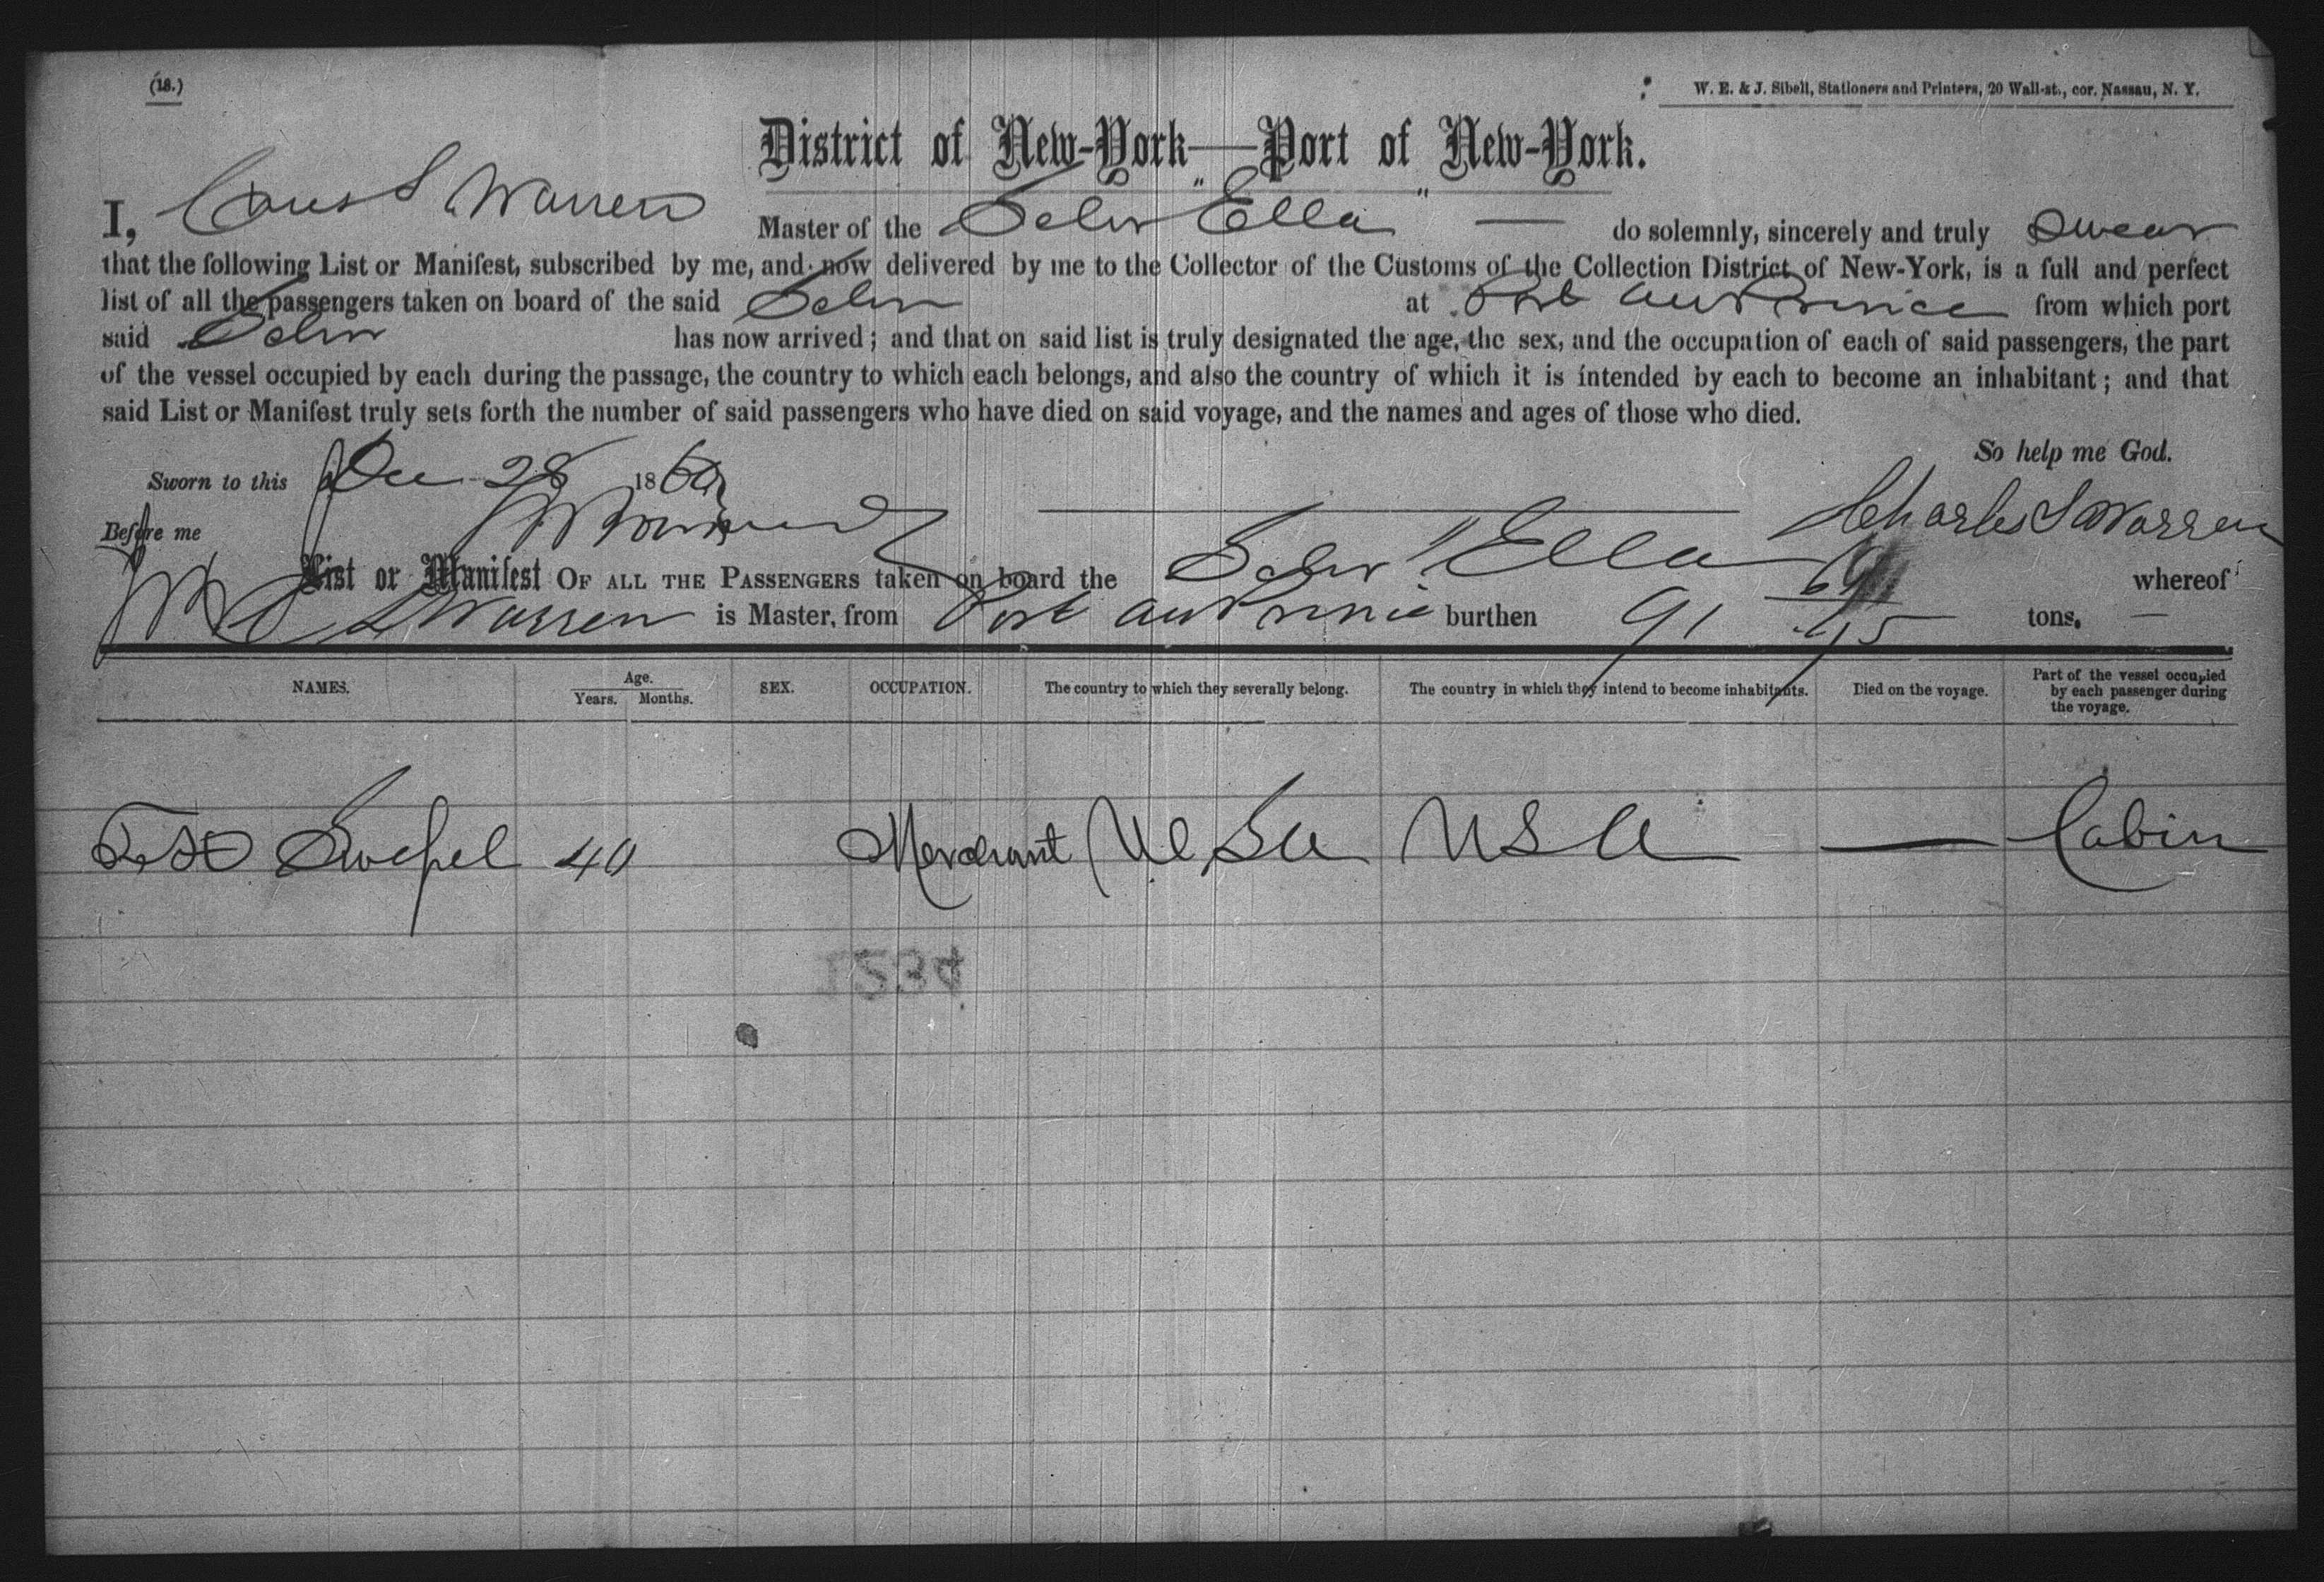 (18.)
W. E. & J. Sibell, Stationers and Printers, 20 Wall-st., cor. Nassau, N. Y.
District of New-York—Port of New-York.
I, Chas S. Warren Master of the Schr "Ella" — do solemnly, sincerely and truly Swear
that the following List or Manifest, subscribed by me, and now delivered by me to the Collector of the Customs of the Collection District of New-York, is a full and perfect
list of all the passengers taken on board of the said Schr at Port au Prince from which port
said Schr has now arrived; and that on said list is truly designated the age, the sex, and the occupation of each of said passengers, the part
of the vessel occupied by each during the passage, the country to which each belongs, and also the country of which it is intended by each to become an inhabitant; and that
said List or Manifest truly sets forth the number of said passengers who have died on said voyage, and the names and ages of those who died.
So help me God.
Sworn to this Dec 28 186
Charles S Warren
Before me
List or Manifest OF ALL THE PASSENGERS taken on board the Schr "Ella whereof
S Warren is Master, from Port au Prince burthen 91 /95 tons.
NAMES. Age. Years. Months. SEX. OCCUPATION. The country to which they severally belong. The country in which they intend to become inhabitants. Died on the voyage. Part of the vessel occupied by each passenger during the voyage.
40 Merchant U S A U S A — Cabin
1534